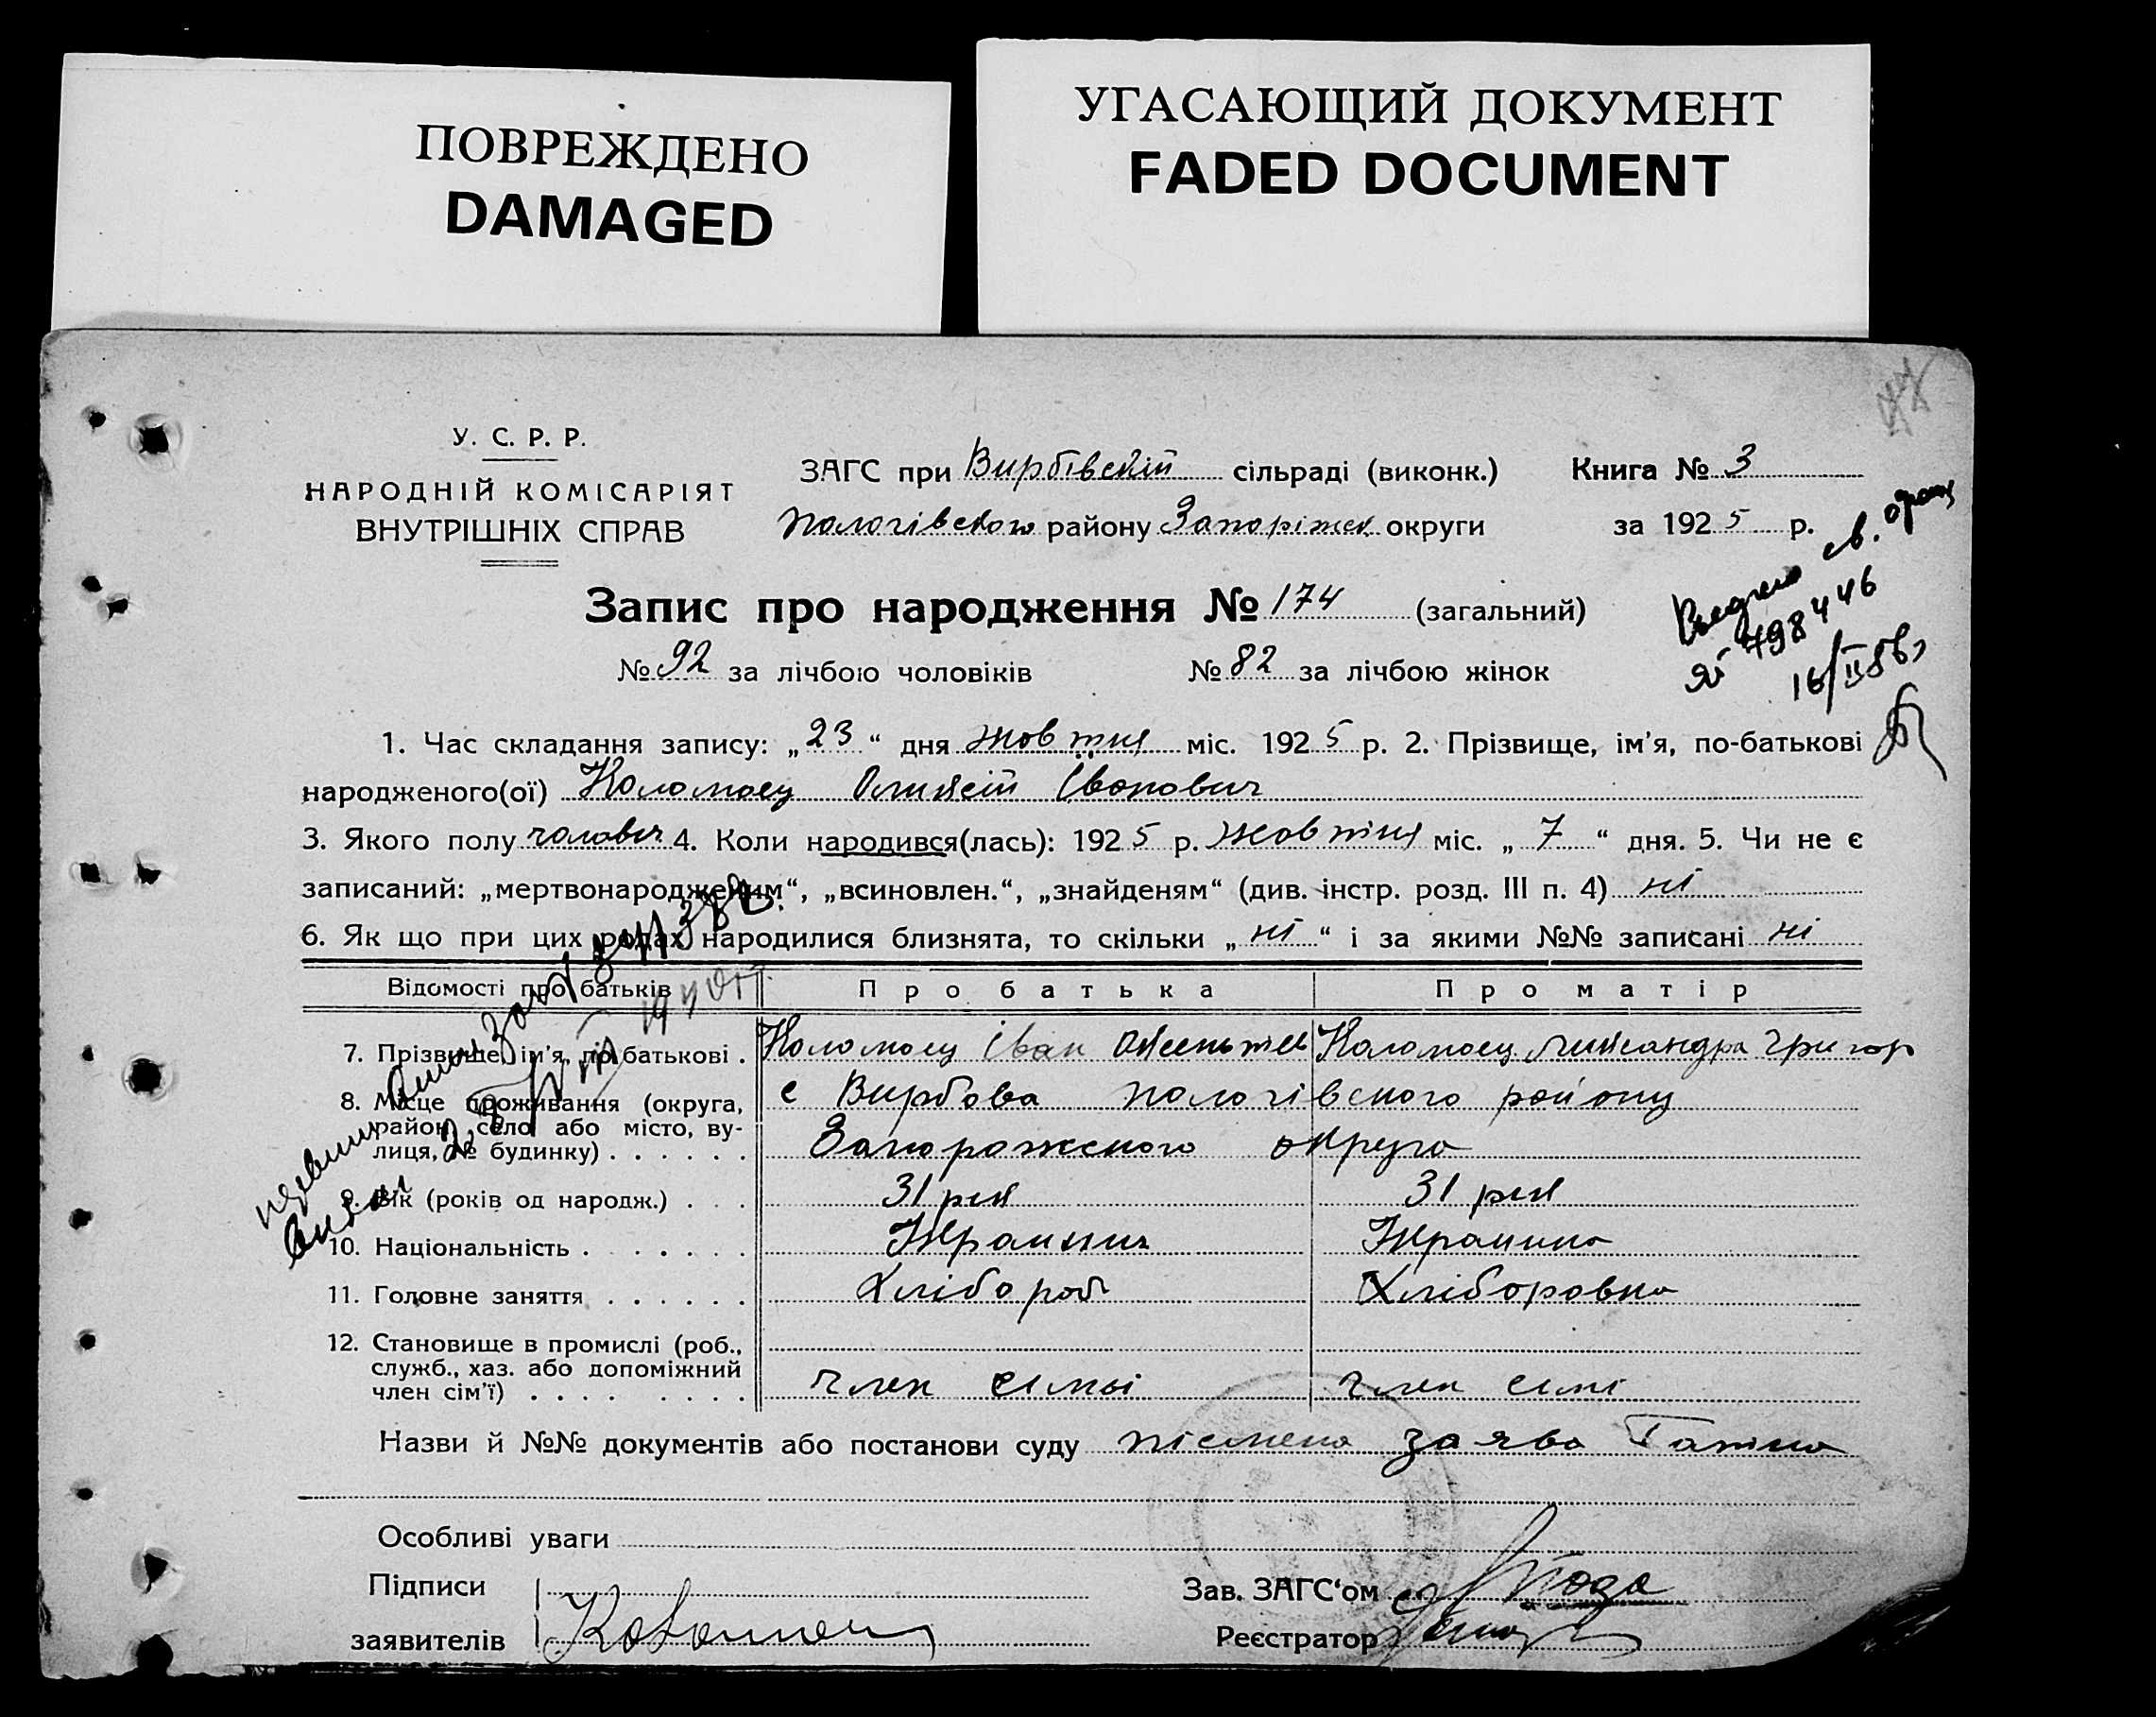 ПОВРЕЖДЕНО
DAMAGED
УГАСАЮЩИЙ ДОКУМЕНТ
FADED DOCUMENT
У. С. Р. Р.
НАРОДНІЙ КОМІСАРІЯТ
ВНУТРІШНІХ СПРАВ
ЗАГС при Вирбівскій сільраді (виконк.) Книга № 3
Пологівского району Запоріжск округи за 1925 р.
Запис про народження № 174 (загальний)
№ 92 за лічбою чоловіків № 82 за лічбою жінок
498446
1. Час складання запису: „23“ дня жовтня міс. 1925 р. 2. Прізвище, ім’я, по-батькові
народженого(ої) Коломоец Олексій Іванович
3. Якого полу чоловіч 4. Коли народився(лась): 1925 р. жовтня міс. „7“ дня. 5. Чи не є
записаний: „мертвонародженим“, „всиновлен.“, „знайденям“ (див. інстр. розд. III п. 4) ні
6. Як що при цих родах народилися близнята, то скільки „ні“ і за якими №№ записані ні
Відомості про батьків Про батька Про матір
7. Прізвище, ім’я, по батькові . Коломоец Іван Коломоец Григор
8. Місце проживання (округа, с Вирбова пологівского району
район, село або місто, ву-
лиця, № будинку) . . . . . . Запорожского округа
9. Вік (років од народж.) . . . 31 рік 31 рік
10. Національність . . . . . . . Украинич Украинка
11. Головне заняття . . . . . . Хлібороб Хліборобка
12. Становище в промислі (роб.,
служб., хаз. або допоміжний
член сім’ї) . . . . . . . . член симьі член симі
Назви й №№ документів або постанови суду пісмена заява
Особливі уваги
Підписи Зав. ЗАГС‘ом
заявителів Реєстратор